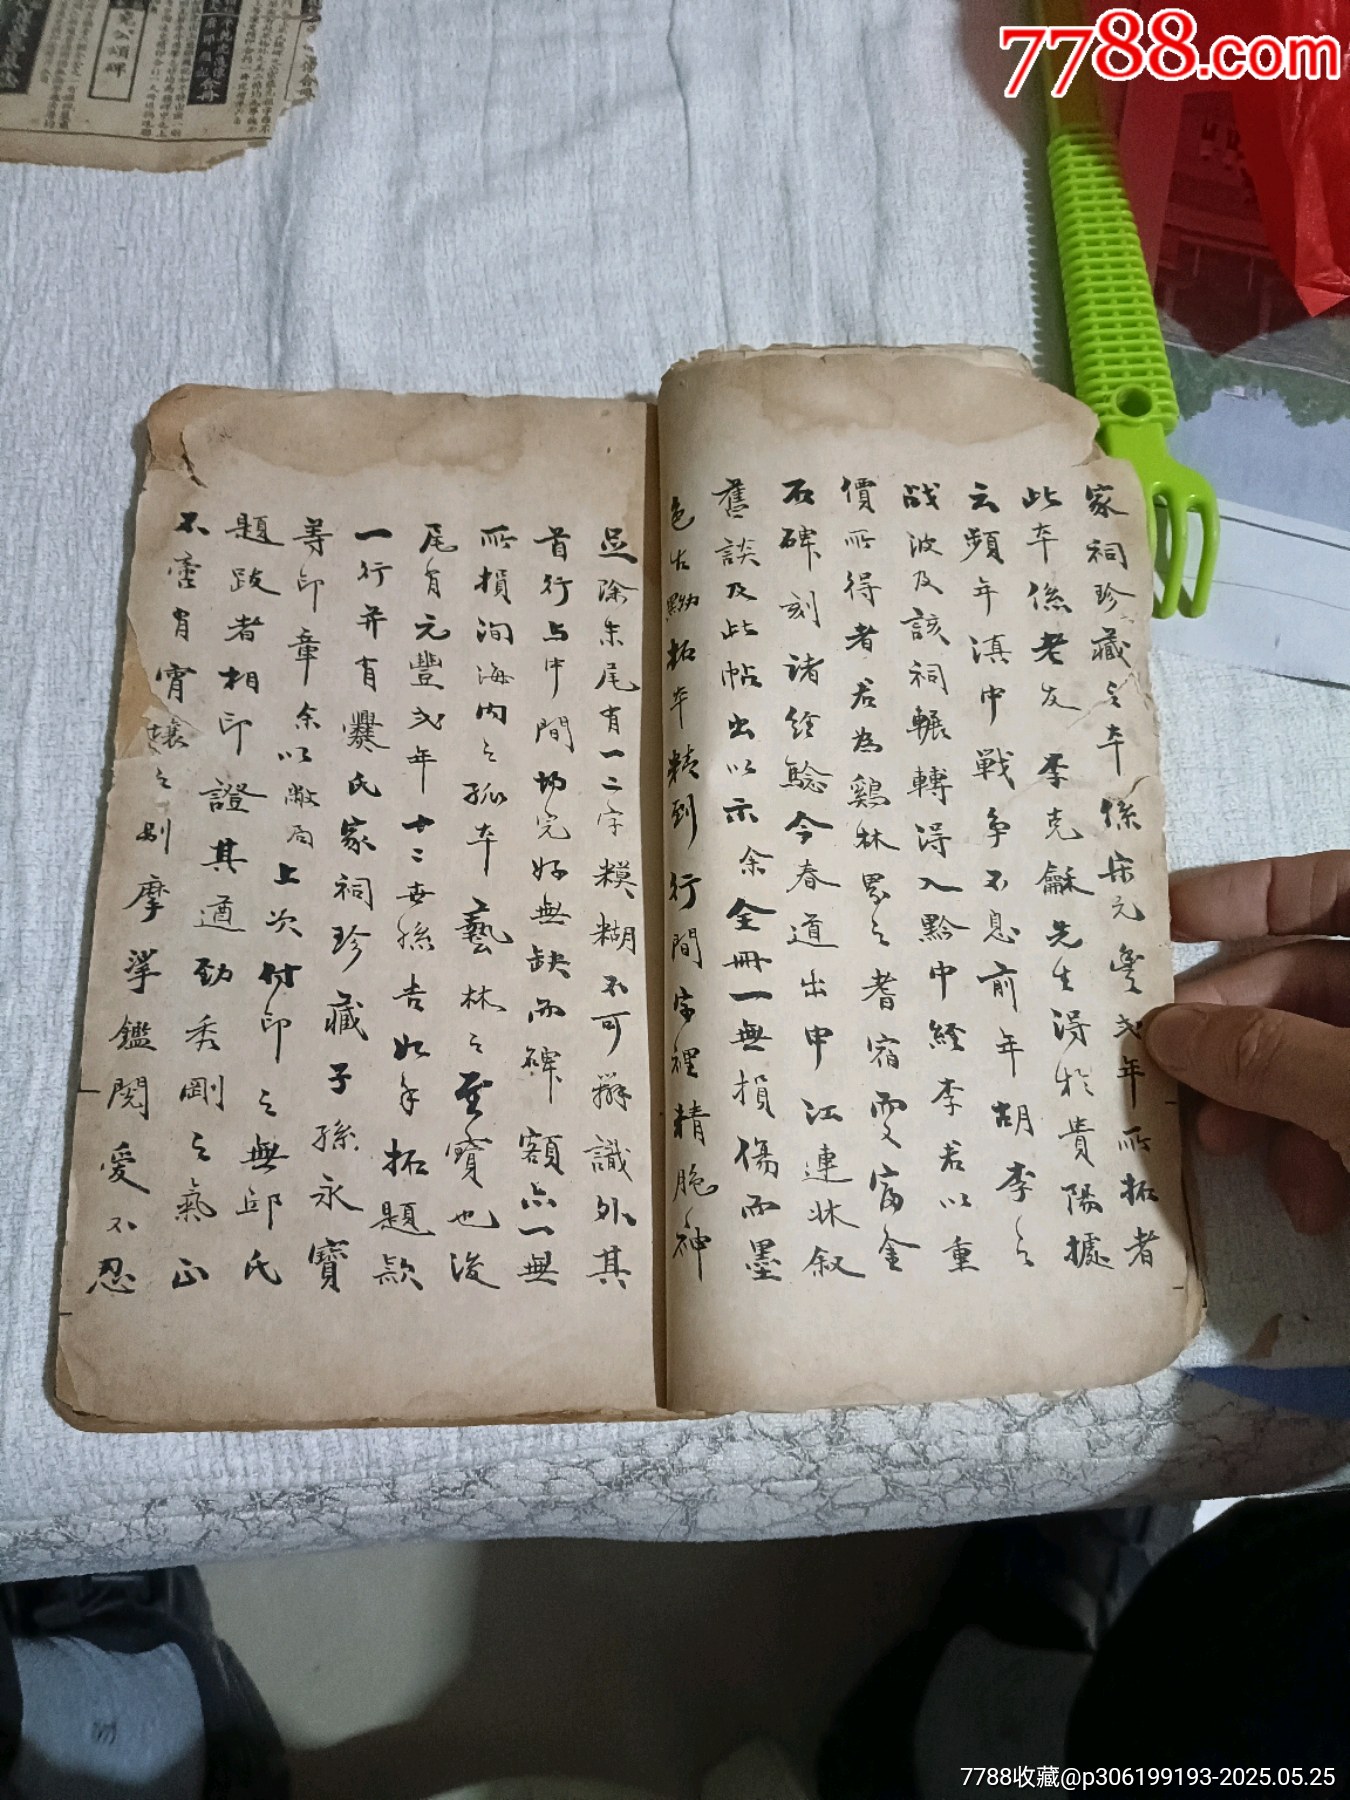 7788.com
家祠珍藏之本係宋元豐弐年所拓者
此本係老友李克龢先生得於貴陽據
云頻年滇中戰争不息前年胡李之
战波及該祠輾轉得入黔中經李君以重
價所得者君為鷄林累之耆宿而又富金
石碑刻諸經鯰今春道出申江連牀叙
舊談及此帖出以示余全冊一無損傷而墨
色古黝拓本精到行間字裡精脆神
足除朱尾有一二字糢糊不可辨識外其
首行与中間均完好無缺而碑額亦一無
所損洵海内之孤本藝林之至寶也後
尾有元豐弐年十二世孫吉如手拓題款
一行并有爨氏家祠珍藏子孫永寶
等印章余以敝局上次付印之無邱氏
題跋者相印證其遒勁秀剛之氣正
不啻有霄壤之別摩挲鑑閱愛不忍
7788收藏@p306199193-2025.05.25